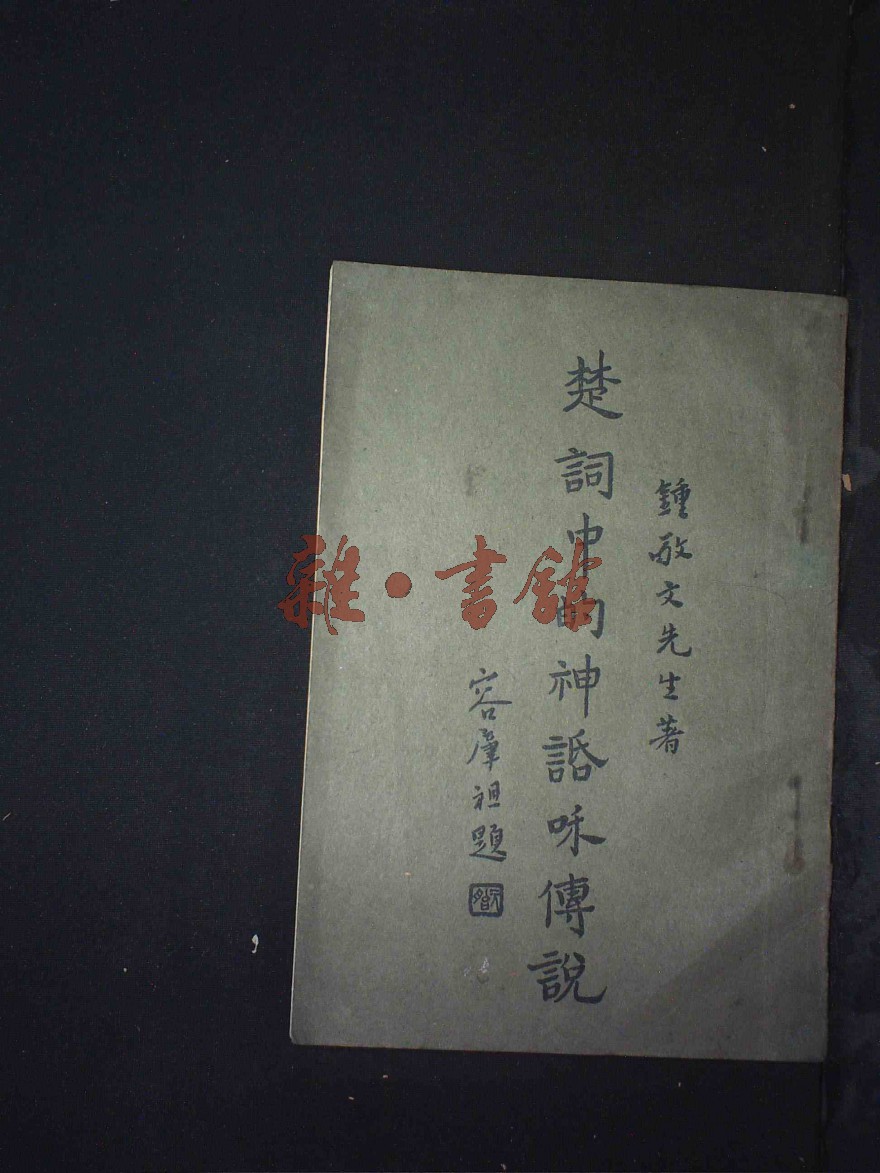 鍾敬文先生著
楚詞中的神話和傳說
容肇祖題
雜·書館